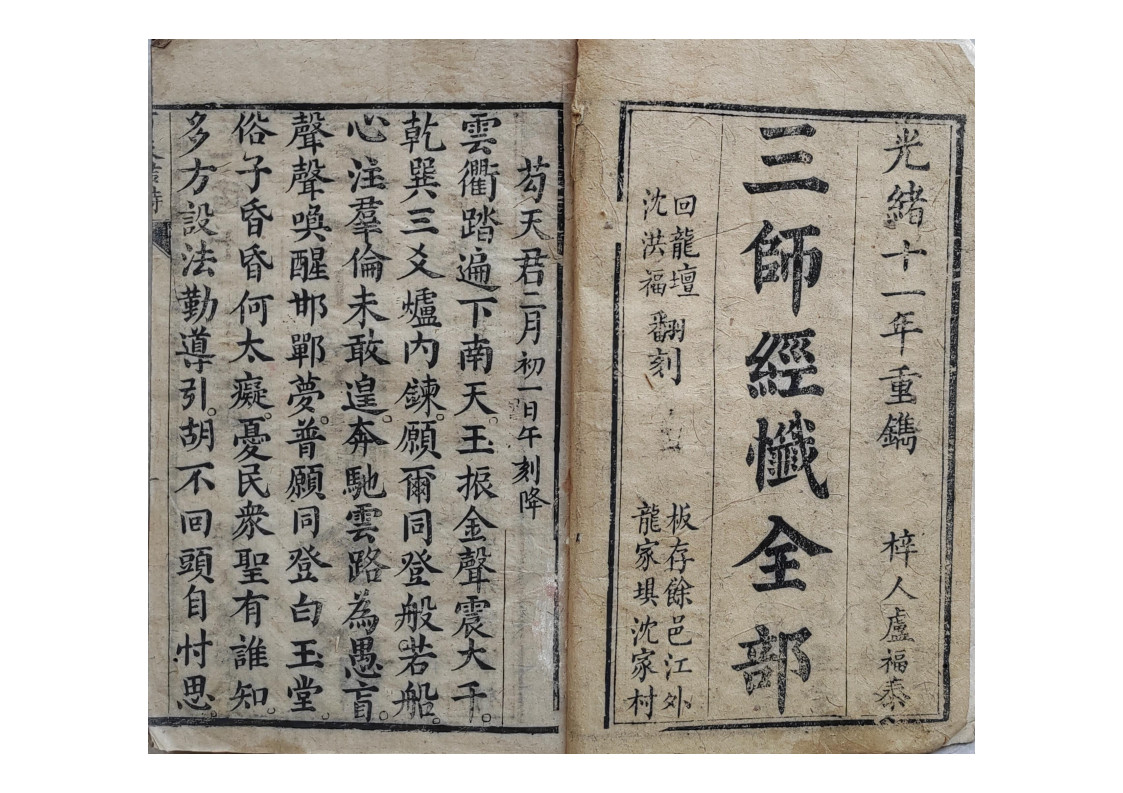 光緒十一年重鐫 梓人盧福泰
三師經懺全部
回龍壇
沈洪福 翻刻
板存餘邑江外
龍家埧沈家村
芶天君二月初一日午刻降
雲衢踏遍下南天。玉振金聲震大千。
乾巽三爻爐內鍊。願爾同登般若船。
心注羣倫未敢遑。奔馳雲路為愚盲。
聲聲喚醒邯鄲夢。普願同登白玉堂。
俗子昏昏何太癡。憂民衆聖有誰知。
多方設法勤導引。胡不回頭自忖思。